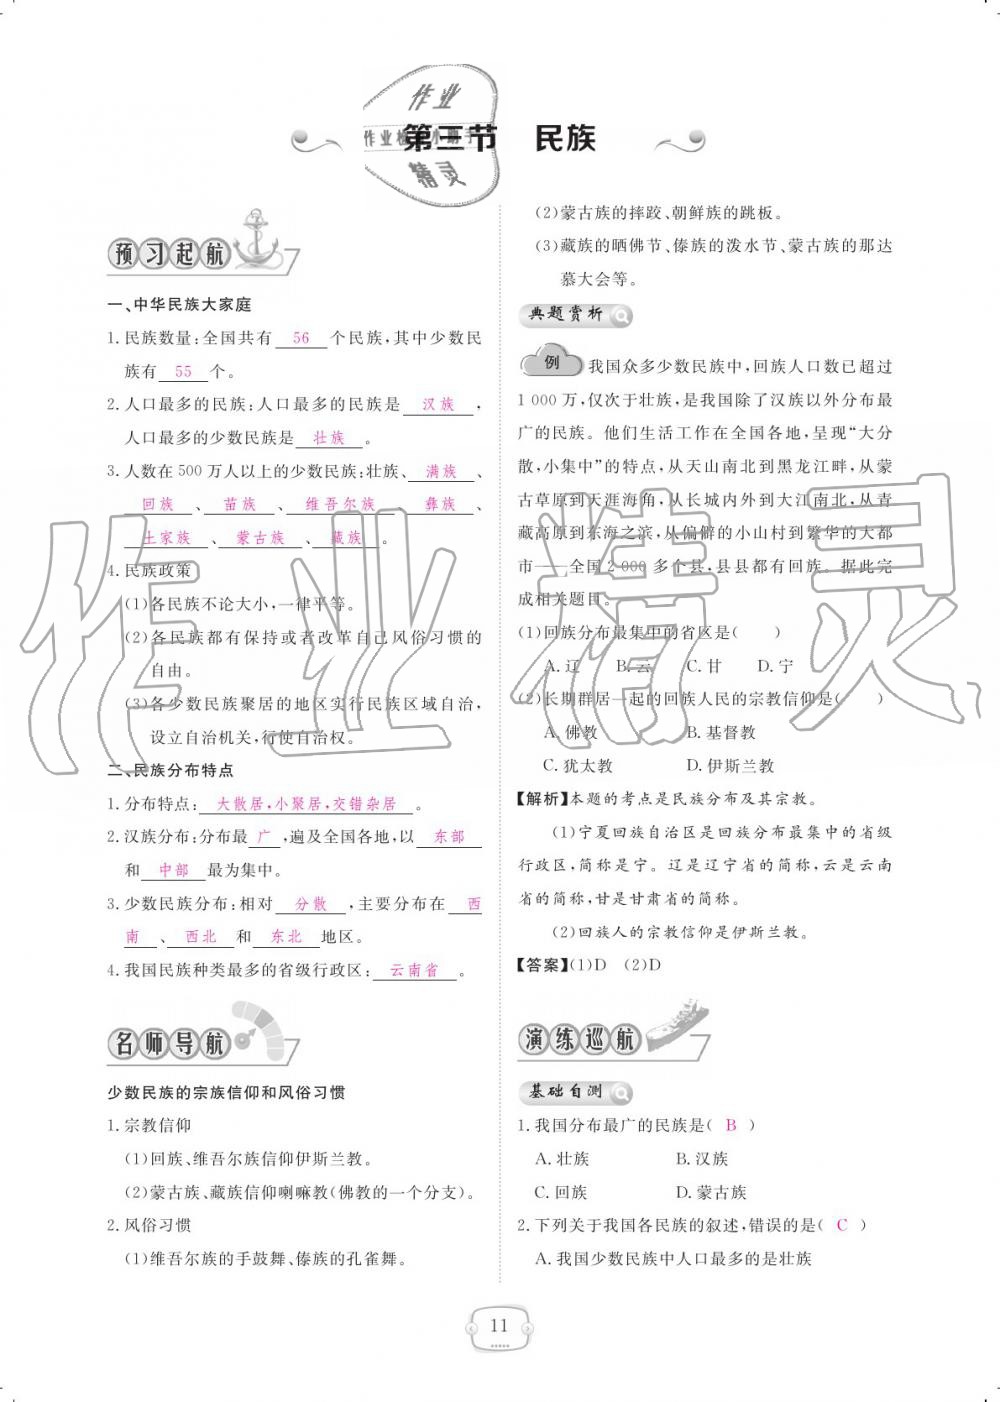 第三节 民族
作业
作业检查小助手
精灵
预习起航
一、中华民族大家庭
1.民族数量:全国共有 56 个民族,其中少数民
族有 55 个。
2.人口最多的民族:人口最多的民族是 汉族 ,
人口最多的少数民族是 壮族 。
3.人数在500万人以上的少数民族:壮族、 满族 、
回族 、 苗族 、 维吾尔族 、 彝族 、
土家族 、 蒙古族 、 藏族 。
4.民族政策
(1)各民族不论大小,一律平等。
(2)各民族都有保持或者改革自己风俗习惯的
自由。
(3)各少数民族聚居的地区实行民族区域自治,
设立自治机关,行使自治权。
二、民族分布特点
1.分布特点: 大散居,小聚居,交错杂居 。
2.汉族分布:分布最 广 ,遍及全国各地,以 东部
和 中部 最为集中。
3.少数民族分布:相对 分散 ,主要分布在 西
南 、 西北 和 东北 地区。
4.我国民族种类最多的省级行政区: 云南省 。
名师导航
少数民族的宗族信仰和风俗习惯
1.宗教信仰
(1)回族、维吾尔族信仰伊斯兰教。
(2)蒙古族、藏族信仰喇嘛教(佛教的一个分支)。
2.风俗习惯
(1)维吾尔族的手鼓舞、傣族的孔雀舞。
(2)蒙古族的摔跤、朝鲜族的跳板。
(3)藏族的晒佛节、傣族的泼水节、蒙古族的那达
慕大会等。
典题赏析
例 我国众多少数民族中,回族人口数已超过
1 000万,仅次于壮族,是我国除了汉族以外分布最
广的民族。他们生活工作在全国各地,呈现“大分
散,小集中”的特点,从天山南北到黑龙江畔,从蒙
古草原到天涯海角,从长城内外到大江南北,从青
藏高原到东海之滨,从偏僻的小山村到繁华的大都
市——全国2 000多个县,县县都有回族。据此完
成相关题目。
(1)回族分布最集中的省区是( )
A.辽 B.云 C.甘 D.宁
(2)长期群居一起的回族人民的宗教信仰是( )
A.佛教 B.基督教
C.犹太教 D.伊斯兰教
【解析】本题的考点是民族分布及其宗教。
(1)宁夏回族自治区是回族分布最集中的省级
行政区,简称是宁。辽是辽宁省的简称,云是云南
省的简称,甘是甘肃省的简称。
(2)回族人的宗教信仰是伊斯兰教。
【答案】(1)D (2)D
演练巡航
基础自测
1.我国分布最广的民族是( B )
A.壮族 B.汉族
C.回族 D.蒙古族
2.下列关于我国各民族的叙述,错误的是( C )
A.我国少数民族中人口最多的是壮族
11
作业精灵